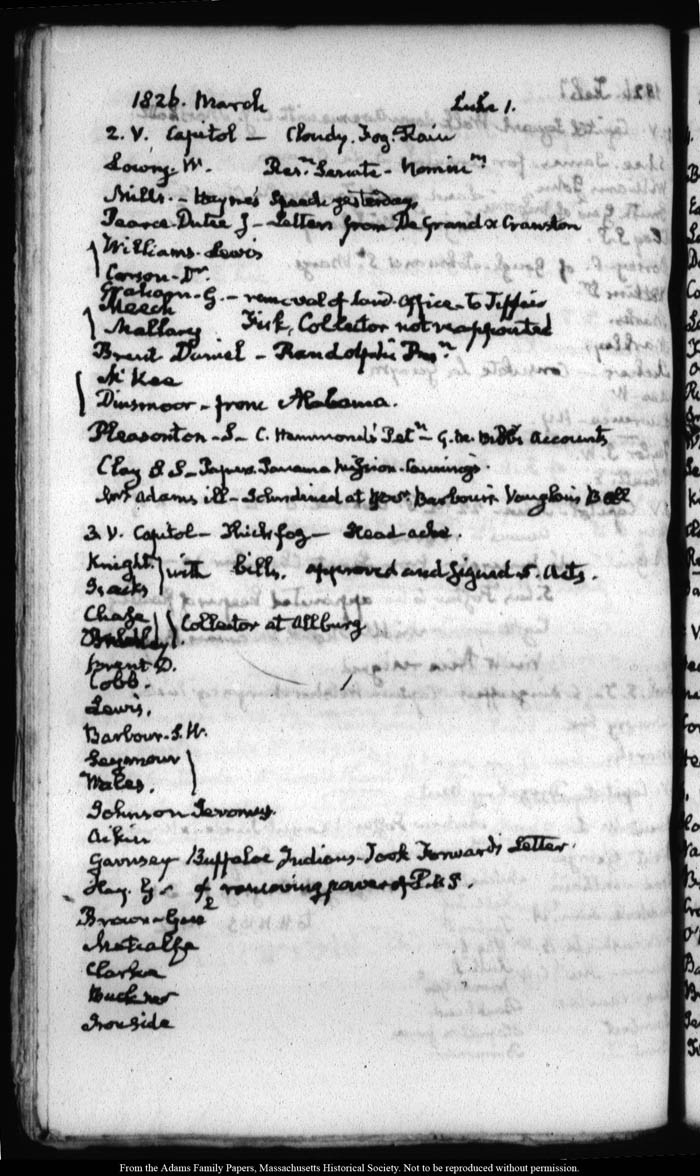 1826. March Luke 1.
2. V. Capitol — Cloudy. Fog. Rain
Lowry. W. Resn. Senate - Nominns
Mills. - Hayne's Speech yesterday,
Pearce. Dutee J - Letters from De Grand & Cranston
Williams - Lewis
Carson - Dr.
Graham - G. - removal of land-Office - to Jeffers
Meech
Mallary Fisk, Collector not reappointed
Brent Daniel - Randolph's
McKee
Dinsmoor - from Alabama.
Pleasonton - S - C. Hammond's Petn - G. M. Accounts
Clay & S - Papers. Panama Mission - Cannings.
Mrs Adams ill - John dined at Govr. Barbour's Vaughan's Ball
3. V. Capitol - Thick fog - Head ache.
Knight. with bills. approved and signed 5. Acts.
Isacks
Chase Collector at Allburg
Bradley
Brent D.
Cobb.
Lewis.
Barbour. J. W.
Seymour
Wales.
Johnson Jeromus.
Aikin
Garnsey Buffaloe Indians - Took Forward's Letter.
Hay. G. of removing power of P. U. S.
Brown - Genl
Metcalfe
Clarke
Buckner
Ironside
From the Adams Family Papers, Massachusetts Historical Society. Not to be reproduced without permission.